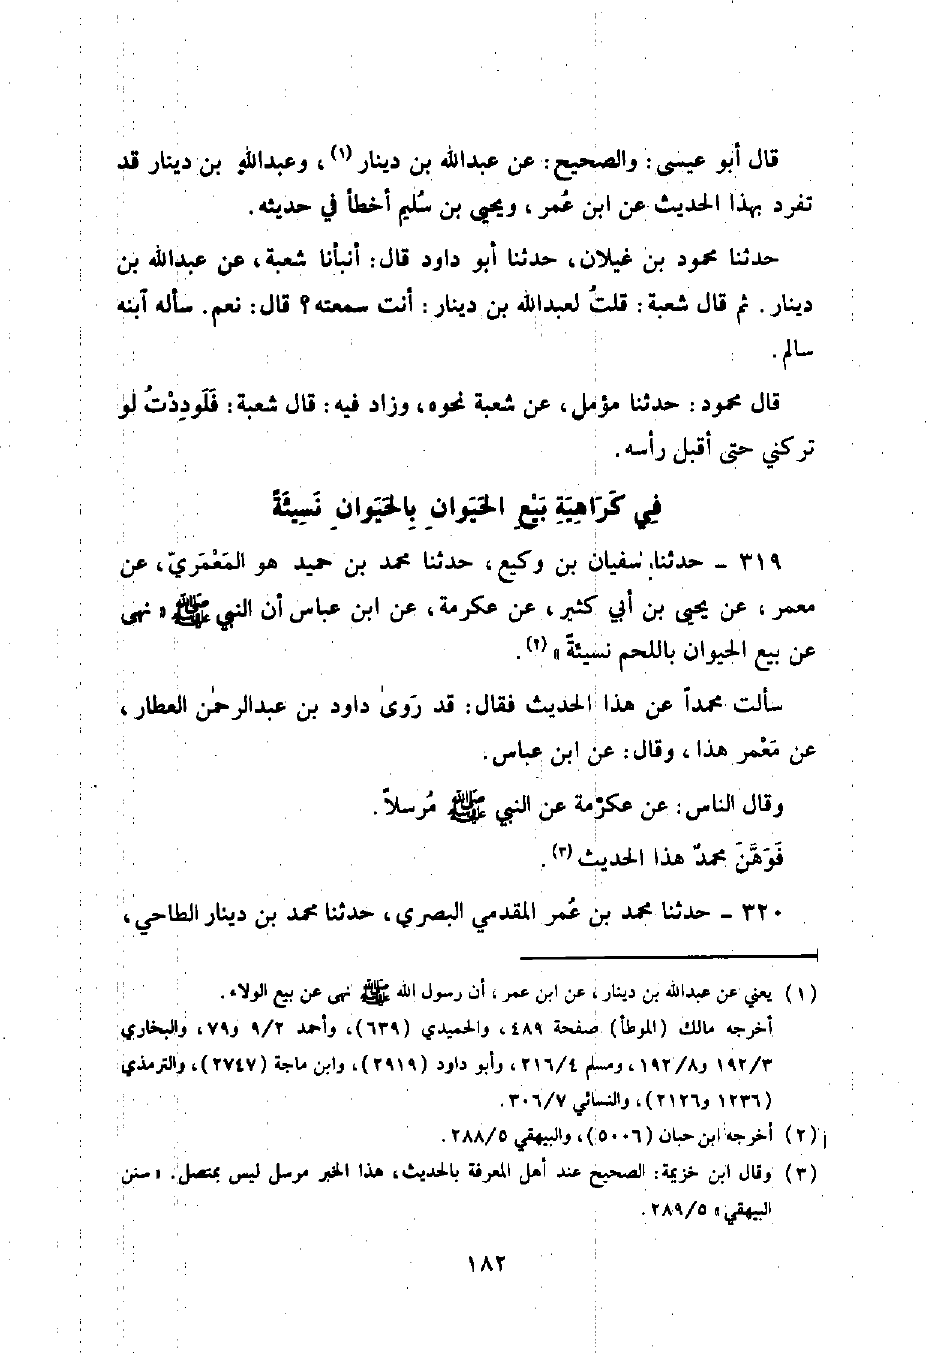 قال أبو عيسى: والصحيح: عن عبدالله بن دينار (١)، وعبدالله بن دينار قد
تفرد بهذا الحديث عن ابن عُمر، ويحيى بن سُليم أخطأ في حديثه.
حدثنا محمود بن غيلان، حدثنا أبو داود قال: أنبأنا شعبة، عن عبدالله بن
دينار. ثم قال شعبة: قلتُ لعبدالله بن دينار: أنت سمعته؟ قال: نعم. سأله آبنه
سالم.
قال محمود: حدثنا مؤمل، عن شعبة نحوه، وزاد فيه: قال شعبة: فَلَودِدْتُ لو
تركني حتى أقبل رأسه.
فِي كَرَاهِيَةِ بَيْعِ الحَيَوانِ بِالحَيَوانِ نَسِيئَةً
٣١٩ - حدثنا سُفيان بن وكيع، حدثنا محمد بن حميد هو المَعْمَريّ، عن
معمر، عن يحيى بن أبي كثير، عن عكرمة، عن ابن عباس أن النبي ﷺ «نهى
عن بيع الحيوان باللحم نسيئةً» (٢).
سألت محمداً عن هذا الحديث فقال: قد رَوىٰ داود بن عبدالرحمٰن العطار،
عن مَعْمر هذا، وقال: عن ابن عباس.
وقال الناس: عن عكرْمة عن النبي ﷺ مُرسلاً.
فَوَهَّنَ محمدٌ هذا الحديث (٣).
٣٢٠ - حدثنا محمد بن عُمر المقدمي البصري، حدثنا محمد بن دينار الطاحي،
(١) يعني عن عبدالله بن دينار، عن ابن عمر، أن رسول الله ﷺ نهى عن بيع الولاء.
أخرجه مالك (الموطأ) صفحة ٤٨٩، والحميدي (٦٣٩)، وأحمد ٩/٢ و٧٩، والبخاري
١٩٢/٣ و١٩٢/٨، ومسلم ٢١٦/٤، وأبو داود (٢٩١٩)، وابن ماجة (٢٧٤٧)، والترمذي
(١٢٣٦ و٢١٢٦)، والنسائي ٣٠٦/٧.
(٢) أخرجه ابن حبان (٥٠٠٦)، والبيهقي ٢٨٨/٥.
(٣) وقال ابن خزيمة: الصحيح عند أهل المعرفة بالحديث، هذا الخبر مرسل ليس بمتصل. «سنن
البيهقي» ٢٨٩/٥.
١٨٢